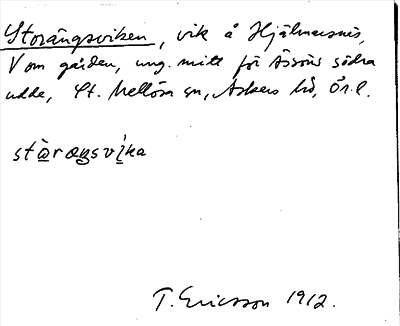 Storängsviken, vik å Hjälmarsnäs,
V om gården, ung. mitt för Åsöns södra
udde, St. Mellösa sn, Askers hd, Ör. l.
T. Ericsson 1912.